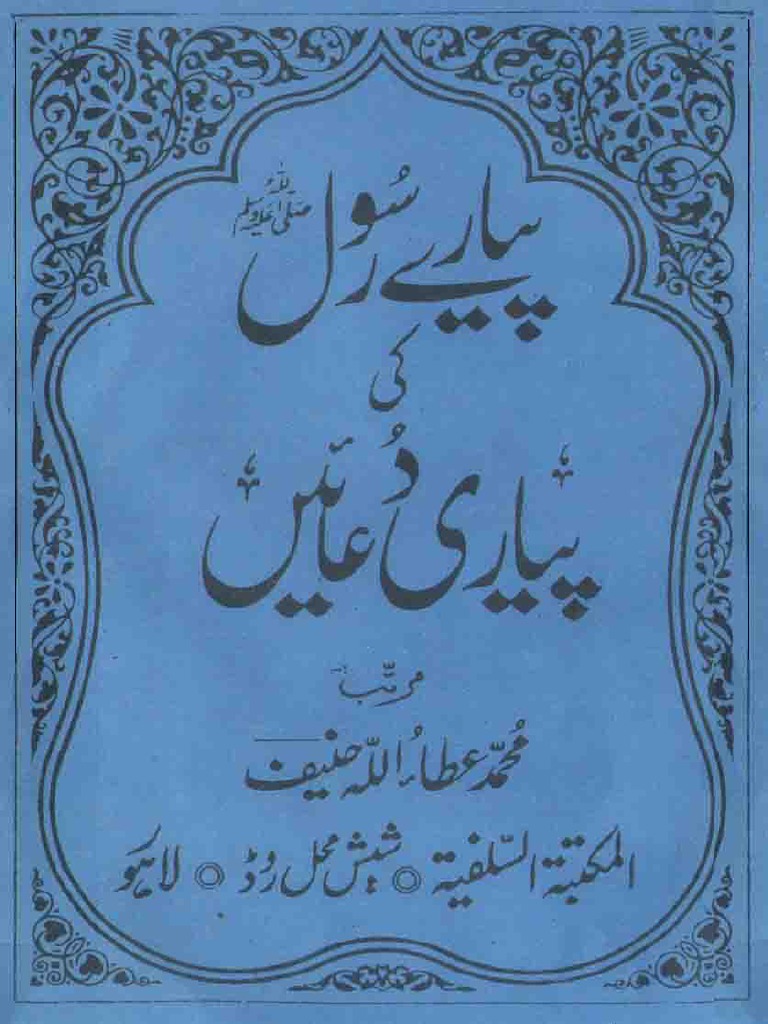 پیارے رسول صلی اللہ علیہ وسلم
کی
پیاری دُعائیں
مرتّب
محمّد عطاءُ اللّٰہ حنیف
المکتبۃ السّلفیۃ شیش محل روڈ لاہور